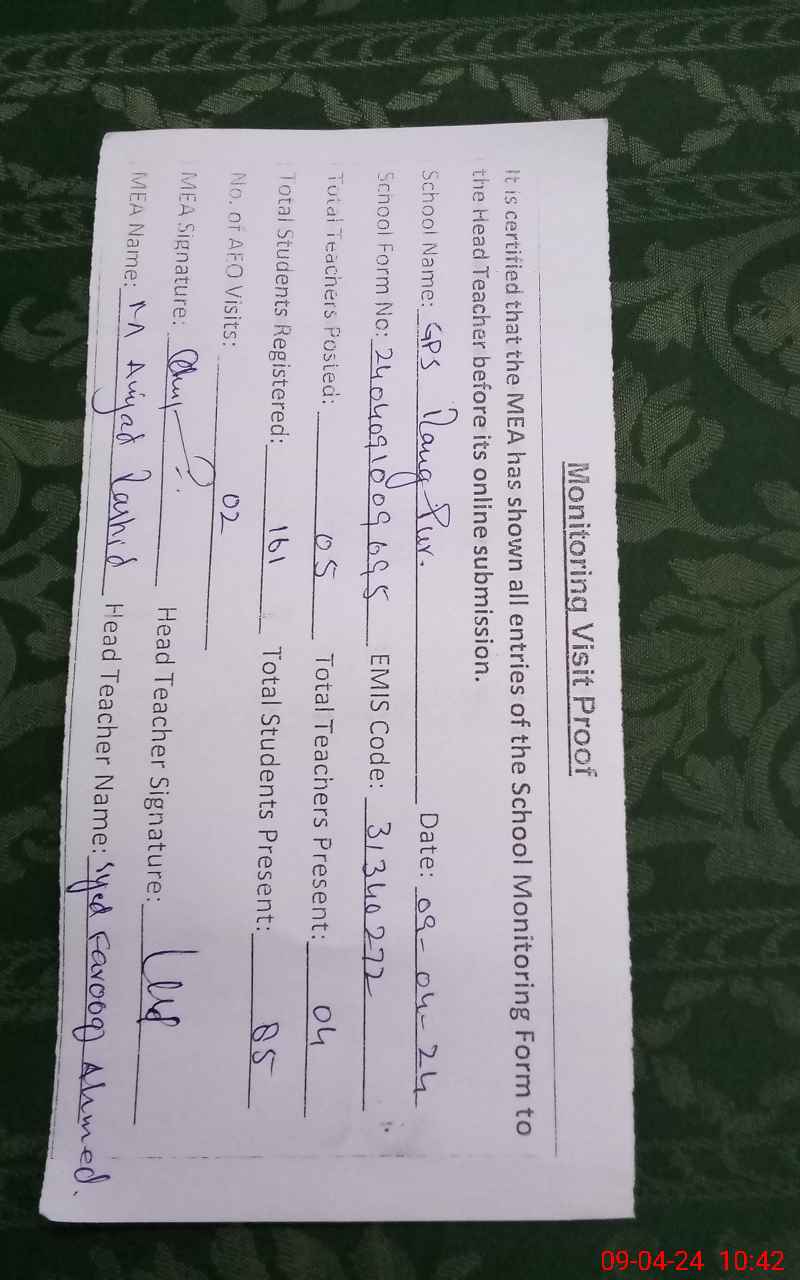 Monitoring Visit Proof
It is certified that the MEA has shown all entries of the School Monitoring Form to
the Head Teacher before its online submission.
School Name: GPS Rang Pur. Date: 09-04-24
School Form No: 2404091009695 EMIS Code: 31340272
Total Teachers Posted: 05 Total Teachers Present: 04
Total Students Registered: 161 Total Students Present: 85
No. of AEO Visits: 02
MEA Signature: Head Teacher Signature:
MEA Name: M Amjad Rashid Head Teacher Name: Syed Farooq Ahmed.
09-04-24 10:42